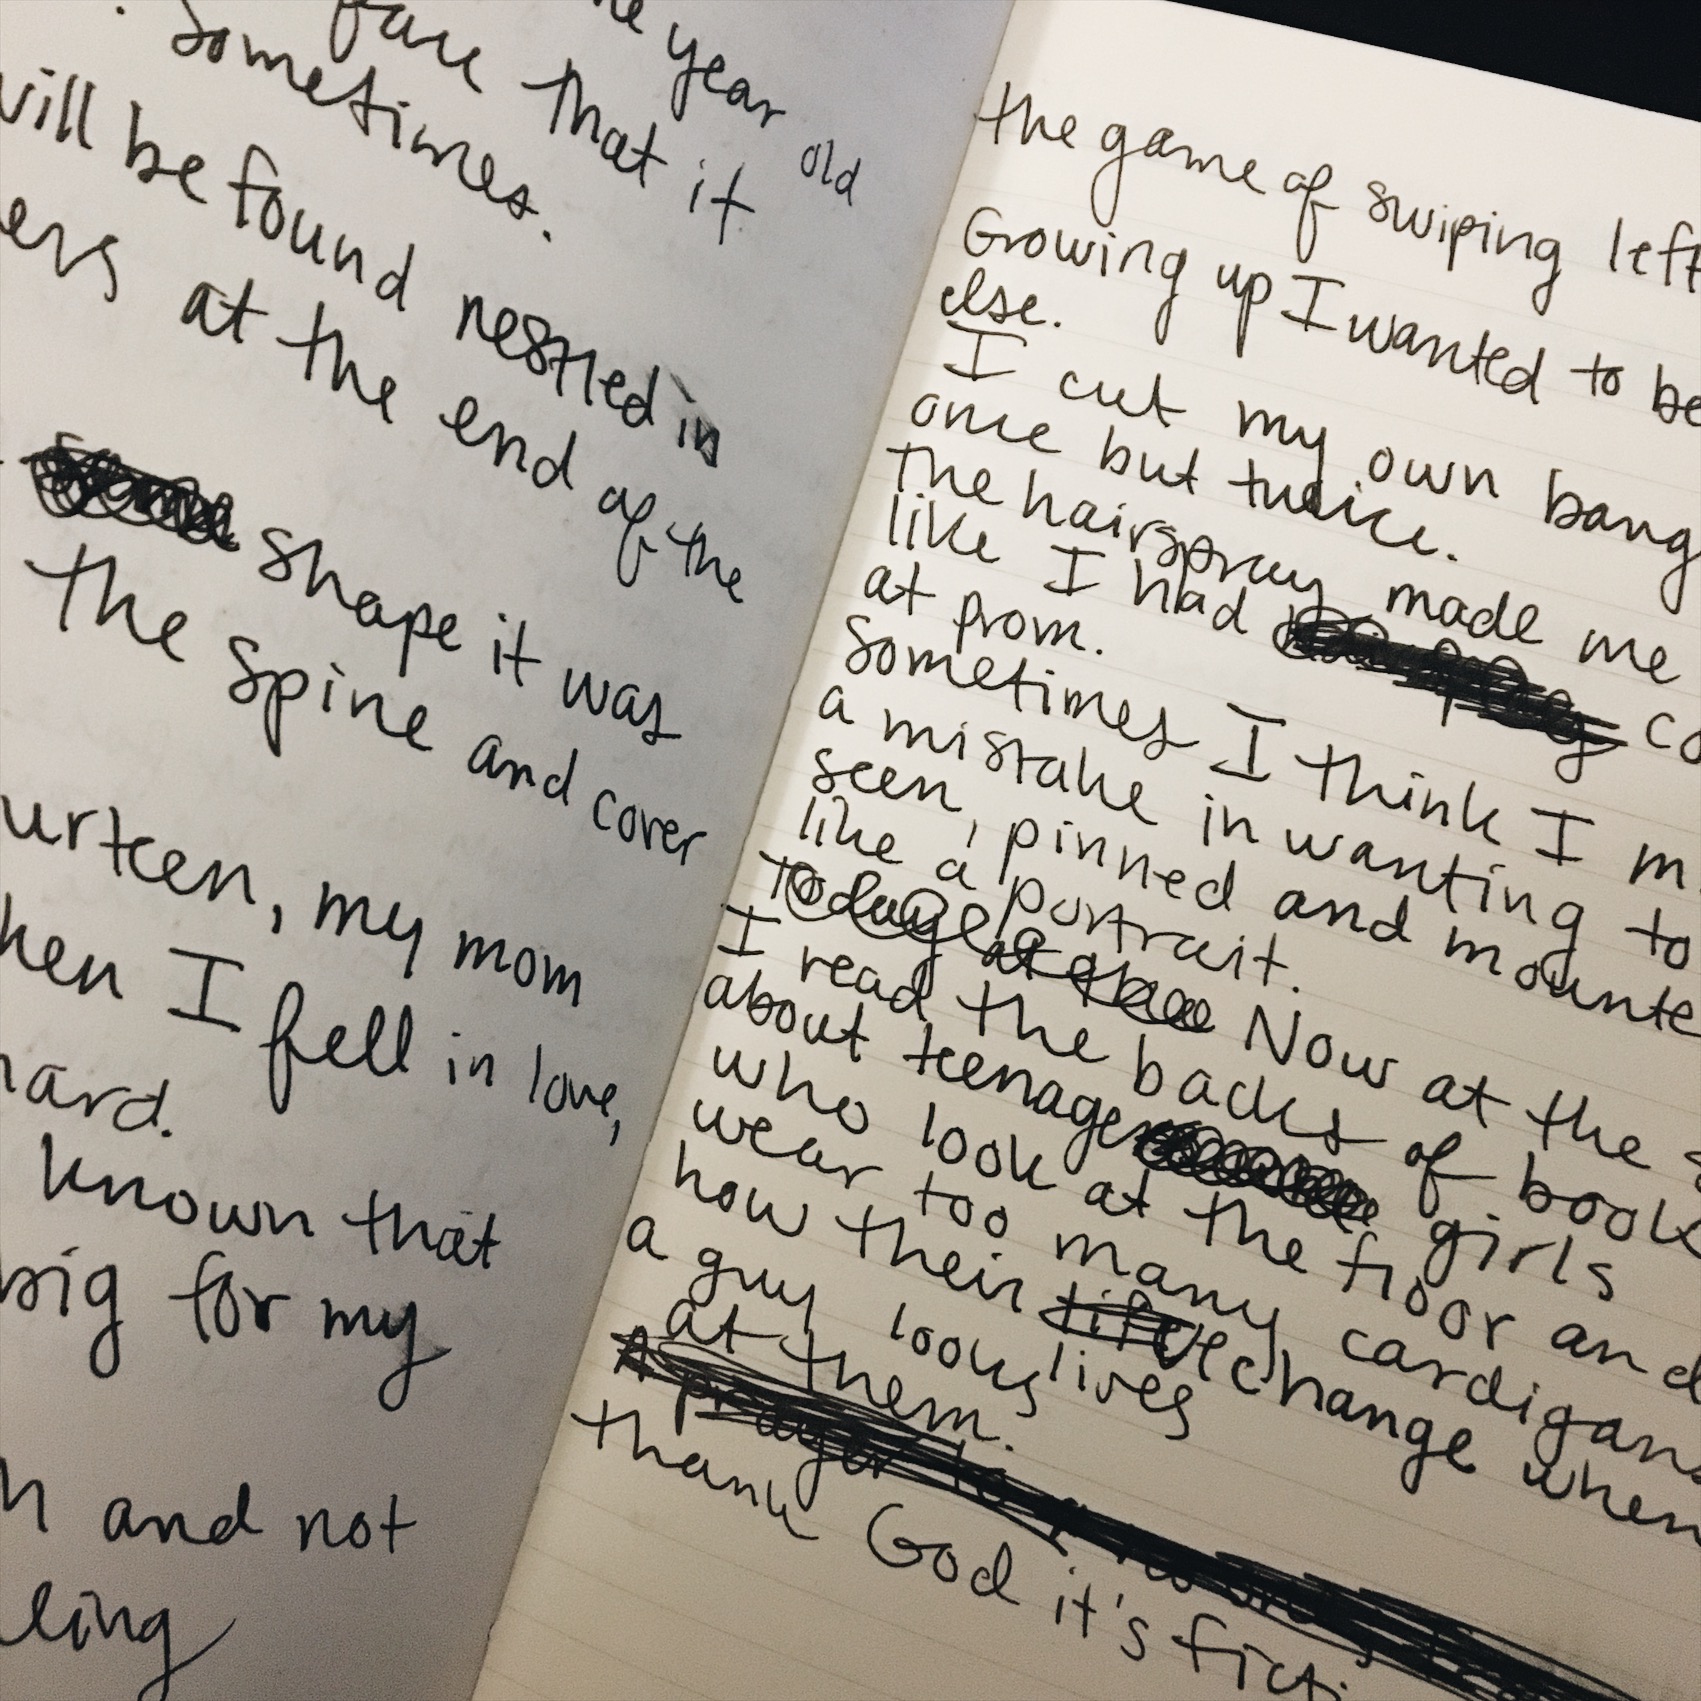 ne year old
. Sometimes.
face that it
will be found nestled in
ers at the end of the
shape it was
the spine and cover
urteen, my mom
hen I fell in love,
hard.
known that
big for my
and not
ling
the game of swiping left
Growing up I wanted to be
else.
I cut my own bang
once but twice.
the hairspray made me
like I had co
at prom.
Sometimes I think I m
a mistake in wanting to
seen, pinned and mounte
like a portrait.
Today at the Now at the s
I read the backs of book
about teenage girls
who look at the floor and
wear too many cardigans
how their life lives change when
a guy looks
at them.
A prayer to
thank God it's ficti